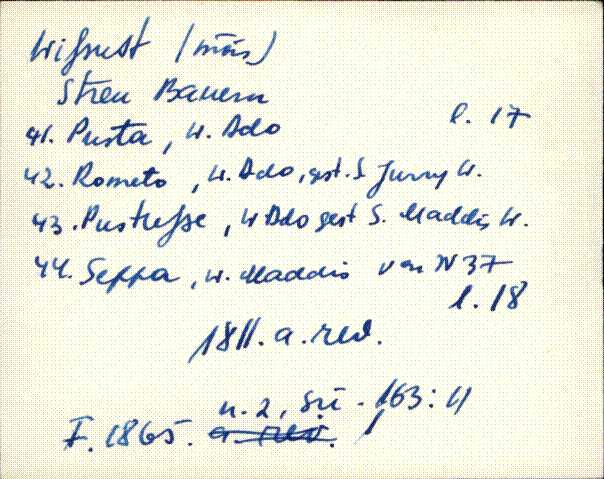 (mõis)
Streu Bauern
l. 17
41. Pusta, W. Ado
42. Rometo, W. Ado, gest. S. Jurry W.
43. Pustusse, W Ado gest S. Maddis W.
44. Seppa, W. Maddis von N 37
l. 18
1811. a. rev.
n. 2, s.ü. 163: 11
F. 1865.